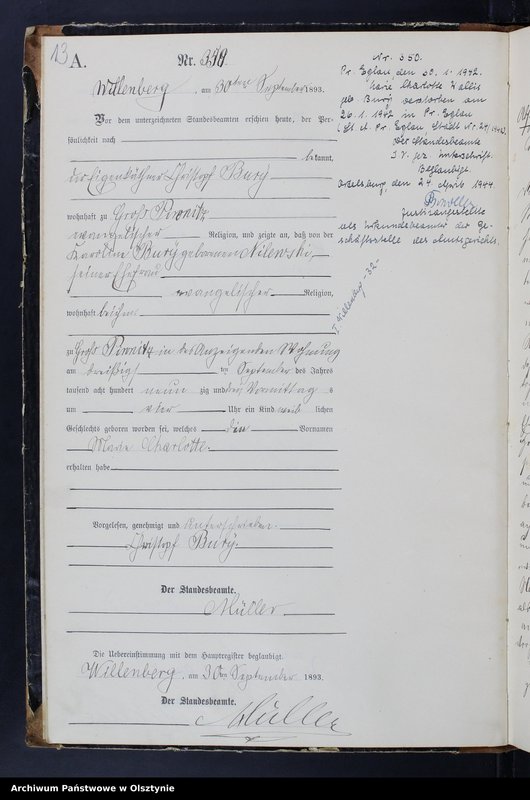 13
A.
Nr. 350.
Willenberg, am 30ten September 1893.
Vor dem unterzeichneten Standesbeamten erschien heute, der Per-
sönlichkeit nach
bekannt,
der Eigenkäthner Christoph Bury
wohnhaft zu Groß Piwnitz
evangelischer Religion, und zeigte an, daß von der
Karoline Bury geborenen Milewski,
seiner Ehefrau
evangelischer Religion,
wohnhaft bei ihm
zu Groß Piwnitz in des Anzeigenden Wohnung
am dreißigsten September des Jahres
tausend acht hundert neun zig und drei Vormittag s
um vier Uhr ein Kind weib lichen
Geschlechts geboren worden sei, welches den Vornamen
Marie Charlotte
erhalten habe
Vorgelesen, genehmigt und unterschrieben
Christoph Bury.
Der Standesbeamte.
Müller
Die Uebereinstimmung mit dem Hauptregister beglaubigt.
Willenberg, am 30ten September 1893.
Der Standesbeamte.
Müller
Nr. 350.
Pr. Eylau, den 30. 1. 1942.
Marie Charlotte Wallis
geb Bury verstorben am
26. 1. 1942 in Pr. Eylau
(St. A. Pr. Eylau, Stadt Nr. 24/1942)
Der Standesbeamte
I. V. gez. Unterschrift.
Beglaubigt.
Ortelsburg, den 24. April 1944
Justizangestellte
als Urkundsbeamter der Ge-
schäftsstelle des Amtsgerichts.
Archiwum Państwowe w Olsztynie